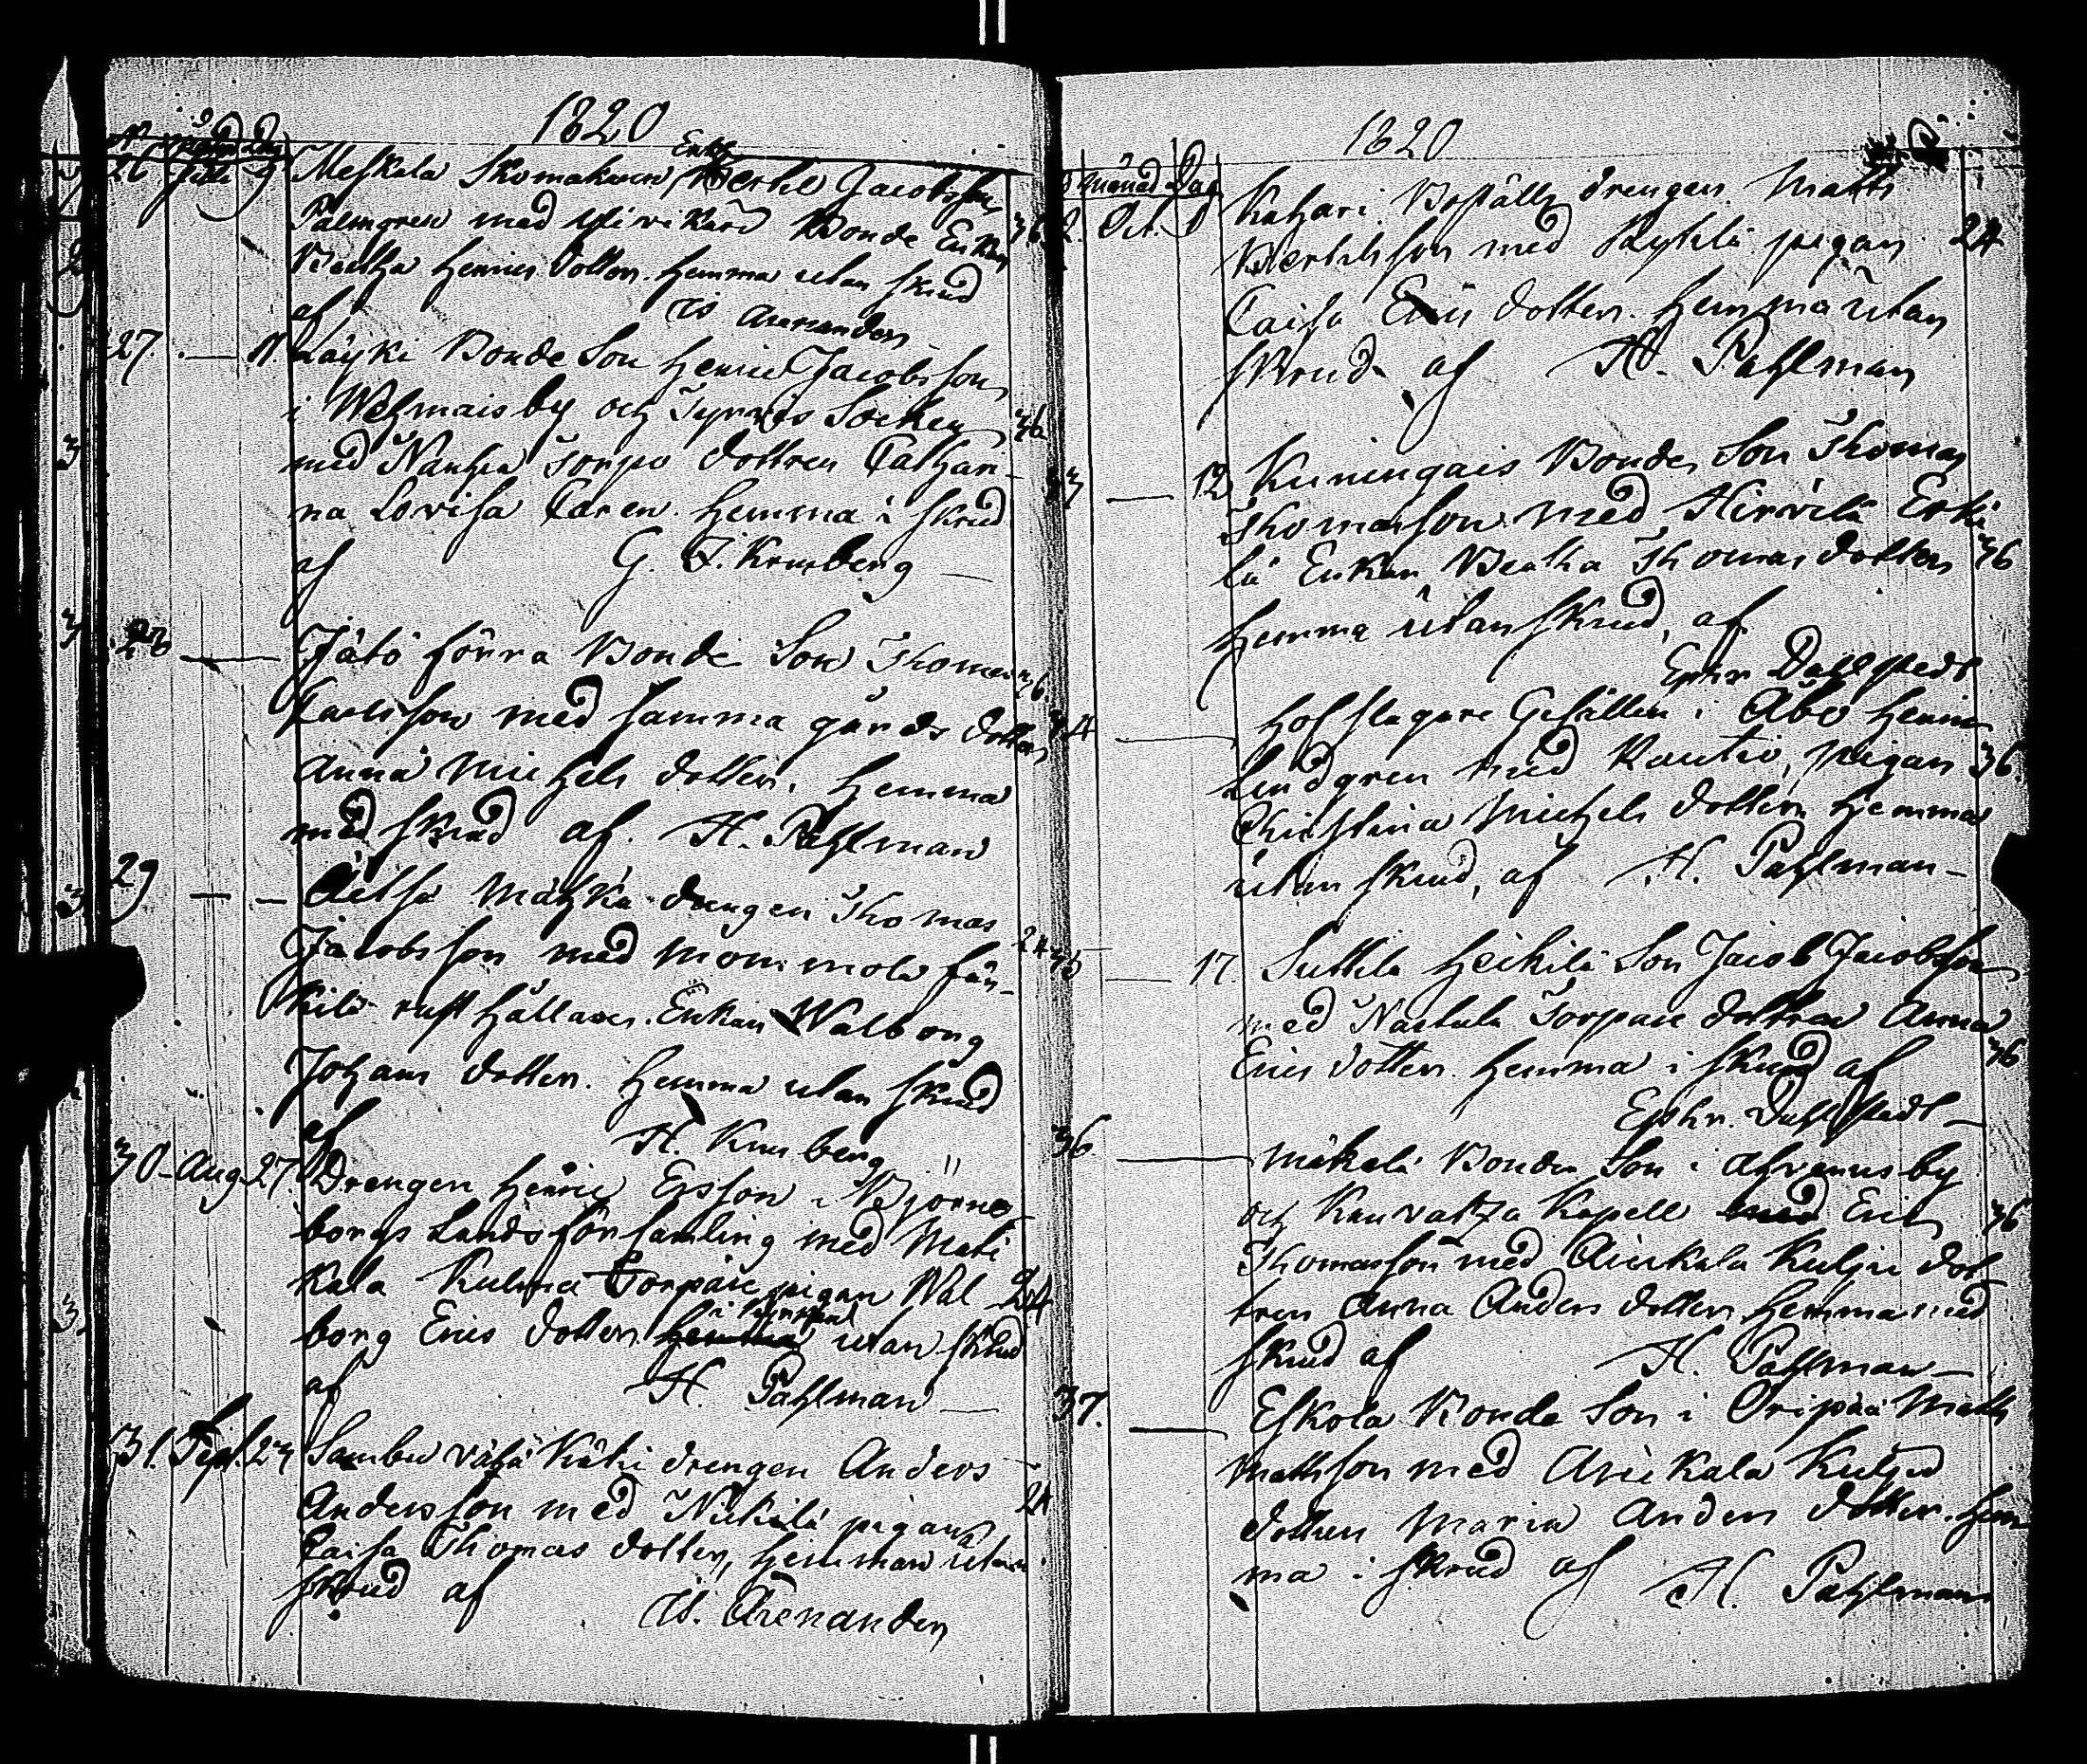 1820
N månad Dag
26 Julii 9 Meskala Skomakaren Enkl. Bertel Jacobsson
Palmgren med Yli vikari Bonde Enkan 36
Beatha Henrics dotter. Hemma utan skrud
af Is Arenander
27. — 11 Läyki Bonde Son Henric Jacobsson
i by och Tyrvis Socken 36
med Torpv dottren Cathari-
na Lovisa Caren. Hemma i skrud
af G. I. Krumberg —
28 — Jätö förra Bonde Son Thomas 36.
Carlsson med samma gårds dotter
Anna Michels dotter. Hemma
med skrud af. H. Pahlman
29 — — Äetsä Mähkä drengen Thomas
Jacobsson med Mommola 24
kilä rusthållares. Enkan Walborg
Johans dotter. Hemma utan skrud
af H. Krumberg
30 - Aug. 27. Drengen Henric Ersson i Björne-
borgs Landsförsamling med Mati
kala Kulma Torpare pigan Wal- 24
borg Erics dotter i kyrkan utan skrud
af H. Pahlman —
31. Sept. 24 Sambu vähä Käki drengen Anders —
Andersson med Nickilä pigan 24
Caisa Thomas dotter, Hemma utan
skrud af Is. Arenander
1820
månad Dag
32. Oct. 1 Kahari Beställs drengen Matts
Bertilsson med pigan 24
Caisa Erics dotter. Hemma utan
skrud. af H. Pahlman
33 — 12 Kuningais Bonde Son Thomas
Thomasson med Hirvilä Erki
lä Enkan Beatha Thomas dotter 36
Hemma utan skrud, af
Ephr. Dahlstedt
34 — Hofslagare Gesällen i Åbo Henric
Lindgren med Rautio, pigan 36.
Christina Michels dotter Hemma
utan skrud, af H. Pahlman —
35 — 17. Suttila Heikilä Son Jacob Jacobsson
med Torpare dottren Anna
Erics dotter. Hemma i skrud af 36
Ephr. Dahlstedt —
36. — Mäkelä Bonde Son i by
och Kauvatza Kapell Eric 36
Thomasson med Arickala Kulju dot
tren Anna Anders dotter Hemma med
skrud af H. Pahlman —
37. — Eskola Bonde Son i Oripää Matts
Mattsson med Arickala Kuljo
dottren Maria Anders dotter. Hem
ma i skrud af H. Pahlman